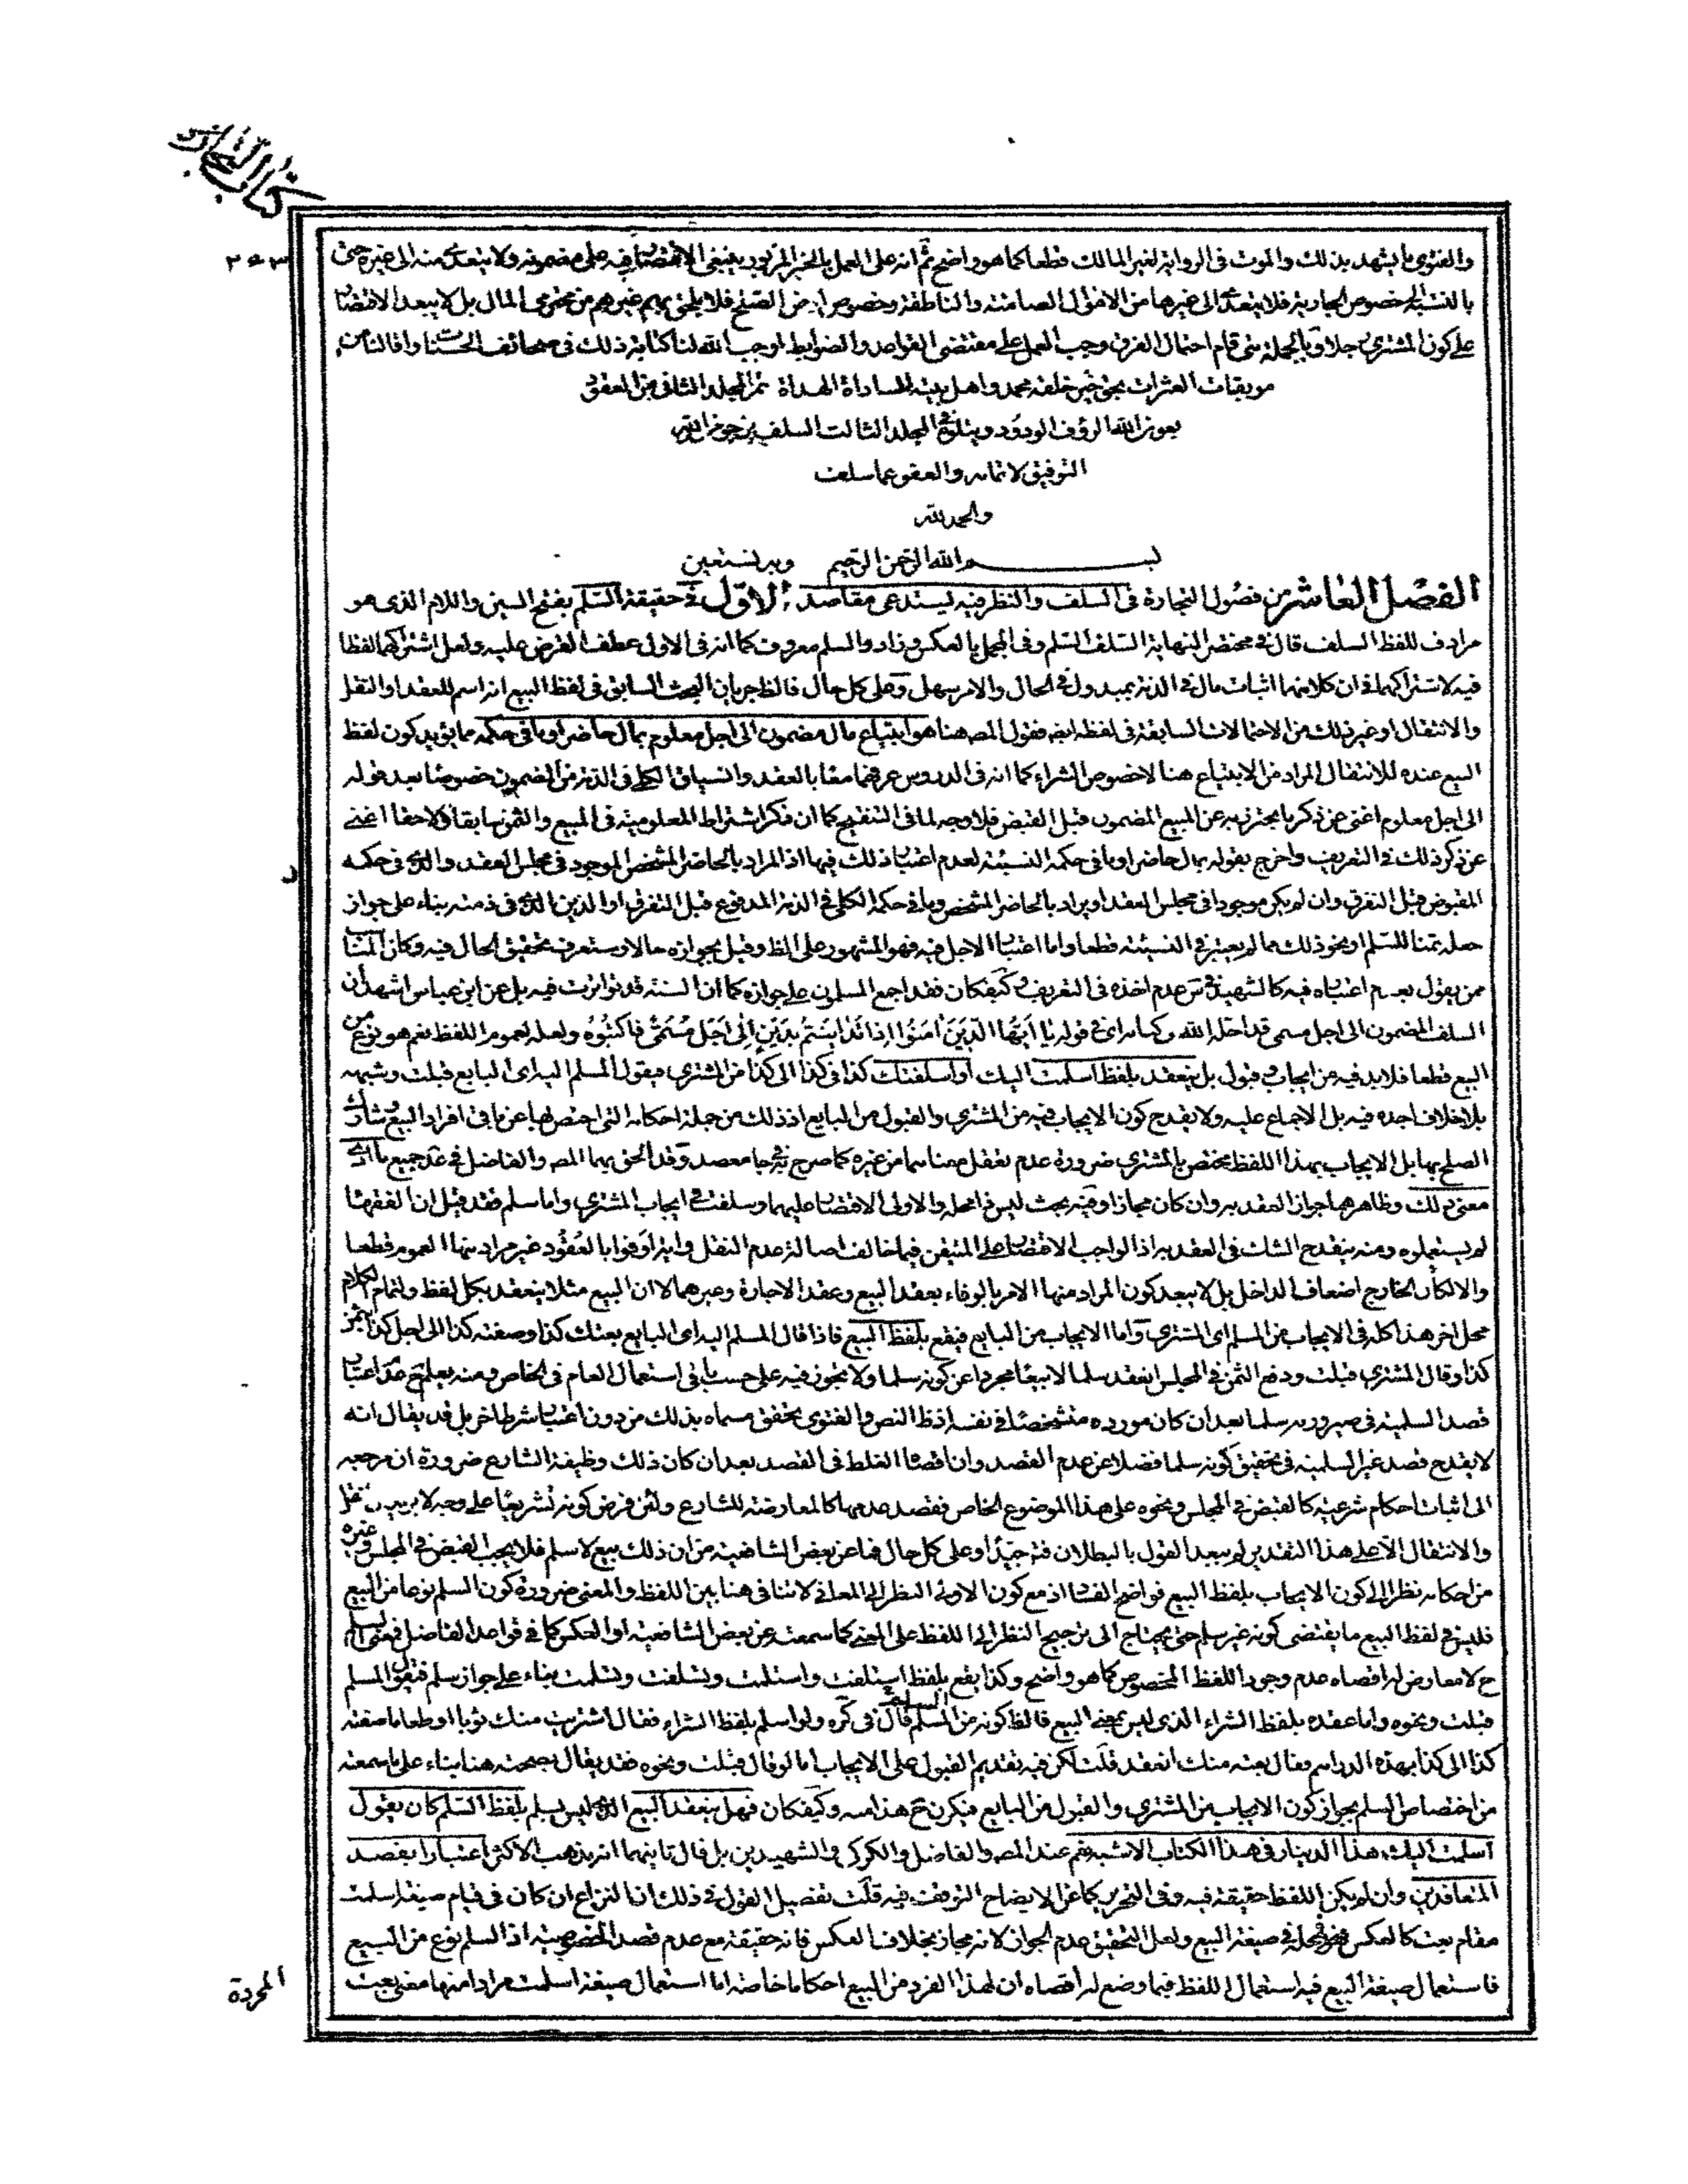 كتاب التجارة
والفتوى ما يشهد بذلك والموت في الرواية لغير المالك قطعا كما هو واضح ثم انه على العمل بالخبر المزبور ينبغي الاقتصار فيه على مضمونه ولا يتعدى منه الى غيره حتى
بالنسبة الى خصوص الجارية فلا يتعدى الى غيرها من الاموال الصامتة والناطقة وخصوص ارض الصلح فلا يلحق بهم غيرهم من محترمي المال بل لا يبعد الاقتصار
على كون المشتري رجلا وبالجملة متى قام احتمال الفرق وجب العمل على مقتضى القواعد والضوابط اوجب الله لنا كتابة ذلك في صحائف الحسنات واقالنا من
موبقات العثرات بحق خير خلقه محمد واهل بيته السادة الهداة تم المجلد الثاني من العقود
بعون الله الرؤف الودود ويتلوه في المجلد الثالث السلف نرجو من الله
التوفيق لاتمامه والعفو عما سلف
والحمد لله
بسم الله الرحمن الرحيم وبه نستعين
الفصل العاشر من فصول التجارة في السلف والنظر فيه يستدعي مقاصد الاول في حقيقة السلم بفتح السين واللام الذي هو
مرادف للفظ السلف قال في مختصر النهاية السلف السلم وفي المجمل بالعكس وزاد والسلم معروف كما انه في الاول عطف القرض عليه ولعل اشتراكهما لفظا
فيه لاشتراكهما في ان كلا منهما اثبات مال في الذمة بمبذول في الحال والامر سهل وعلى كل حال فالظ جريان البحث السابق في لفظ البيع انه اسم للعقد او النقل
والانتقال او غير ذلك من الاحتمالات السابقة في لفظه ايضه فقول المصه هنا هو ابتياع مال مضمون الى اجل معلوم بمال حاضر او ما في حكمه مما يؤيد كون لفظ
البيع عنده للانتقال المراد من الابتياع هنا لا خصوص الشراء كما انه في الدروس عرفهما معا بالعقد وانسياق الكلي في الذمة من المضمون خصوصا بعد قوله
الى اجل معلوم اغنى عن ذكر ما يحترز به عن المبيع المضمون قبل القبض فلا وجه لما في التنقيح كما ان ذكر اشتراط المعلومية في المبيع والثمن سابقا ولاحقا اغنى
عن ذكر ذلك في التعريف واخرج بقوله بمال حاضر او ما في حكمه النسيئة لعدم اعتبار ذلك فيها اذ المراد بالحاضر المشخص الموجود في مجلس العقد والذي في حكمه
المقبوض قبل التفرق وان لم يكن موجودا في مجلس العقد او يراد بالحاضر المشخص وما في حكمه الكلي في الذمة المدفوع قبل التفرق او الدين الذي في ذمته بناء على جواز
جعله ثمنا للسلم او نحو ذلك مما لم يعتبر في النسيئة قطعا واما اعتبار الاجل فيه فهو المشهور على الظ وقيل بجوازه حالا وستعرف تحقيق الحال فيه وكان المتجه
ممن يقول بعدم اعتباره فيه كالشهيد في س عدم اخذه في التعريف وكيفكان فقد اجمع المسلمون على جوازه كما ان السنة قد تواترت فيه بل عن ابن عباس اشهد ان
السلف المضمون الى اجل مسمى قد احله الله وكانه رائ قوله يا ايها الذين امنوا اذا تداينتم بدين الى اجل مسمى فاكتبوه ولعله لعموم اللفظ نعم هو نوع من
البيع قطعا فلا بد فيه من ايجاب وقبول بل ينعقد بلفظ اسلمت اليك او اسلفتك كذا في كذا الى كذا من المشتري فيقول المسلم اليه اي البايع قبلت وشبهه
بلا خلاف اجده فيه بل الاجماع عليه ولا يقدح كون الايجاب فيه من المشتري والقبول من البايع اذ ذلك من جملة احكامه التي اختص بها عن باقي افراد البيع وشارك
الصلح بها بل الايجاب بهذا اللفظ مختص بالمشتري ضرورة عدم تعقل معناهما من غيره كما صرح به في جامع صد وقد الحق بهما المصه والفاضل في عد جميع ما ادى
معنى ذلك وظاهرهما جواز العقد به وان كان مجازا وفيه بحث ليس ذا محله والاولى الاقتصار عليهما وسلفت في ايجاب المشتري واما سلم فقد قيل ان الفقهاء
لم يستعملوه ومنه ينقدح الشك في العقد به اذ الواجب الاقتصار على المتيقن فيما خالف اصالة عدم النقل واية اوفوا بالعقود غير مراد منها العموم قطعا
والا لكان الخارج اضعاف الداخل بل لا يبعد كون المراد منها الامر بالوفاء بعقد البيع وعقد الاجارة وغيرهما لا ان البيع مثلا ينعقد بكل لفظ ولتمام الكلام
محل اخر هذا كله في الايجاب من المسلم اي المشتري واما الايجاب من البايع فيقع بلفظ البيع فاذا قال المسلم اليه اي البايع بعتك كذا وصفته كذا الى اجل كذا بثمن
كذا وقال المشتري قبلت ودفع الثمن في المجلس انعقد سلما لا بيعا مجردا عن كونه سلما ولا تجوز فيه على حسب ما في استعمال العام في الخاص ومنه يعلم عدم اعتبار
قصد السلمية في صيرورته سلما بعد ان كان مورده متشخصا في نفسه اذ ظ النص والفتوى تحقق مسماه بذلك من دون اعتبار شرط اخر بل قد يقال انه
لا يقدح قصد غير السلمية في تحقيق كونه سلما فضلا عن عدم القصد وان اقصاه الغلط في القصد بعد ان كان ذلك وظيفة الشارع ضرورة ان مرجعه
الى اثبات احكام شرعية كالقبض في المجلس ونحوه على هذا الموضوع الخاص فقصد عدمها كالمعارضة للشارع ولئن فرض كونه تشريعا على وجه لا يريد النقل
والانتقال الا على هذا التقدير لم يبعد القول بالبطلان فتو جيدا وعلى كل حال فما عن بعض الشافعية من ان ذلك بيع لا سلم فلا يجب القبض في المجلس وغيره
من احكامه نظرا الى كون الايجاب بلفظ البيع فواضح الفساد اذ مع كون الاولى النظر الى المعاني لا تنافي هنا بين اللفظ والمعنى ضرورة كون السلم نوعا من البيع
فليس في لفظ البيع ما يقتضي كونه غير سلم حتى يحتاج الى ترجيح النظر الى اللفظ على المعنى كما سمعته عن بعض الشافعية او العكس كما في قواعد الفاضل فمعنى السلم
ح لا معارض له اقصاه عدم وجود اللفظ المخصوص كما هو واضح وكذا يقع بلفظ استلفت واستلمت وتسلفت وتسلمت بناء على جواز سلم فيقول المسلم
قبلت ونحوه واما عقده بلفظ الشراء الذي ليس بمعنى البيع فالظ كونه من السلم قال في كره ولو اسلم بلفظ الشراء فقال اشتريت منك ثوبا او طعاما صفته
كذا الى كذا بهذه الدراهم وقال بعته منك انعقد قلت لكن فيه تقديم القبول على الايجاب اما لو قال قبلت ونحوه فقد يقال بصحته هنا بناء على ما سمعته
من اختصاص السلم بجواز كون الايجاب من المشتري والقبول من البايع فيكون ح هذا منه وكيفكان فهل ينعقد البيع الذي ليس بسلم بلفظ السلم كان يقول
اسلمت اليك هذا الدينار في هذا الكتاب الاشبه نعم عند المصه والفاضل والكركي والشهيدين بل قال ثانيهما انه مذهب الاكثر اعتبارا بقصد
المتعاقدين وان لم يكن اللفظ حقيقة فيه وفي التحرير كما عن الايضاح التوقف فيه قلت تفصيل القول في ذلك ان النزاع ان كان في قيام صيغة اسلمت
مقام بعت كالعكس فهو في محله في صيغة البيع ولعل التحقيق عدم الجواز لانه مجاز بخلاف العكس فانه حقيقة مع عدم قصد الخصوصية اذ السلم نوع من البيع
فاستعمال صيغة البيع فيه استعمال اللفظ فيما وضع له اقصاه ان لهذا الفرد من البيع احكاما خاصة اما استعمال صيغة اسلمت مرادا منها معنى بعت
المجردة